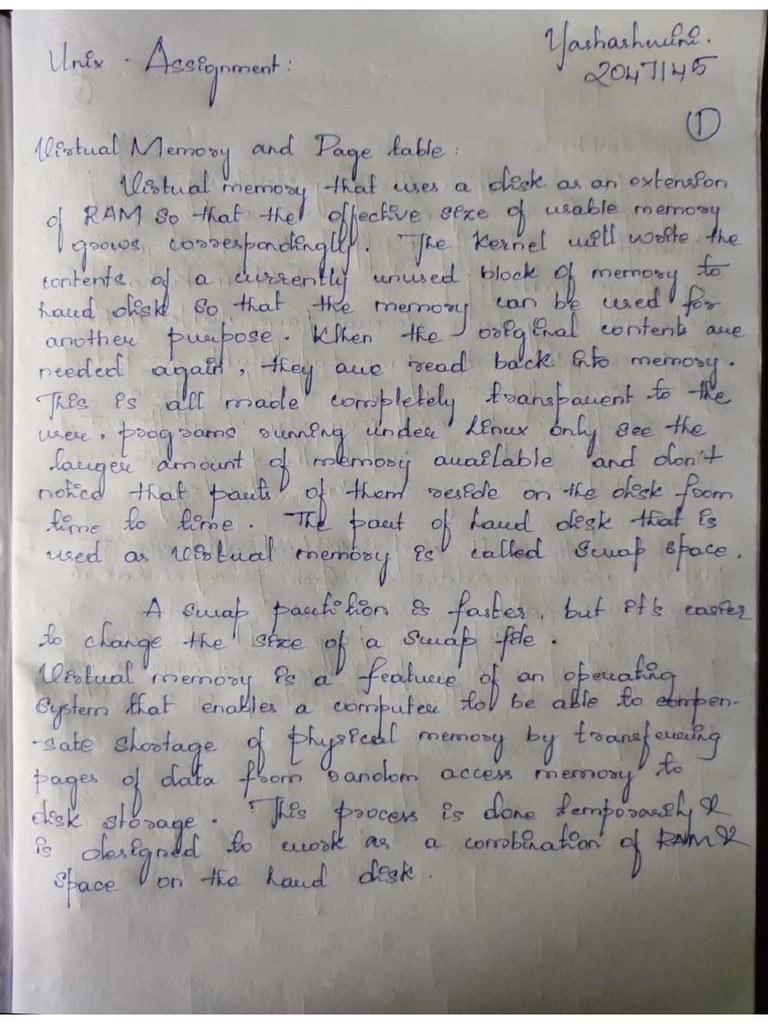 Unix - Assignment:
Yashashwini.
2047145
1
Virtual Memory and Page table:
Virtual memory that uses a disk as an extension
of RAM so that the effective size of usable memory
grows correspondingly. The Kernel will write the
contents of a currently unused block of memory to
hard disk so that the memory can be used for
another purpose. When the original contents are
needed again, they are read back into memory.
This is all made completely transparent to the
user, programs running under Linux only see the
larger amount of memory available and don't
notice that parts of them reside on the disk from
time to time. The part of hard disk that is
used as virtual memory is called swap space.
A swap partition is faster, but it's easier
to change the size of a swap file.
Virtual memory is a feature of an operating
system that enables a computer to be able to compen-
-sate shortage of physical memory by transferring
pages of data from random access memory to
disk storage. This process is done temporarily &
is designed to work as a combination of RAM &
space on the hard disk.